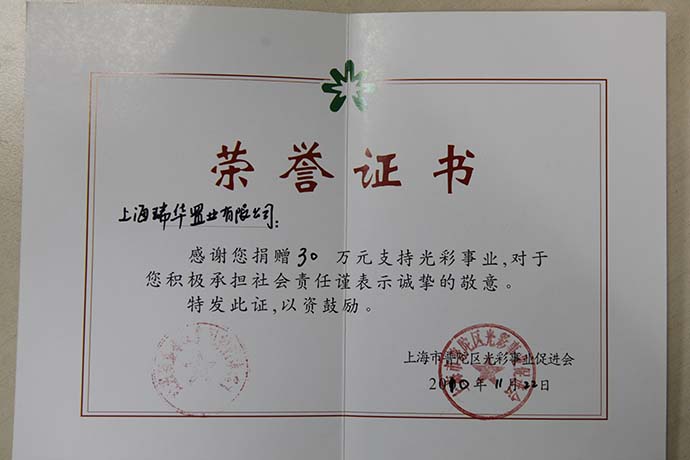 荣誉证书
上海瑞华置业有限公司:
感谢您捐赠30万元支持光彩事业,对于
您积极承担社会责任谨表示诚挚的敬意。
特发此证,以资鼓励。
上海市普陀区光彩事业促进会
2010年11月22日